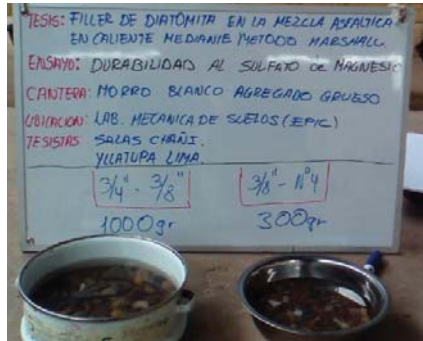 TESIS: FILLER DE DIATOMITA EN LA MEZCLA ASFALTICA
EN CALIENTE MEDIANTE METODO MARSHALL.
ENSAYO: DURABILIDAD AL SULFATO de MAGNESIO
CANTERA: MORRO BLANCO AGREGADO GRUESO
UBICACION: LAB. MECANICA DE SUELOS (EPIC)
TESISTAS SALAS CHAÑI.
YLLATUPA LIMA.
3/4" - 3/8" 3/8" - N°4
1000gr 300gr